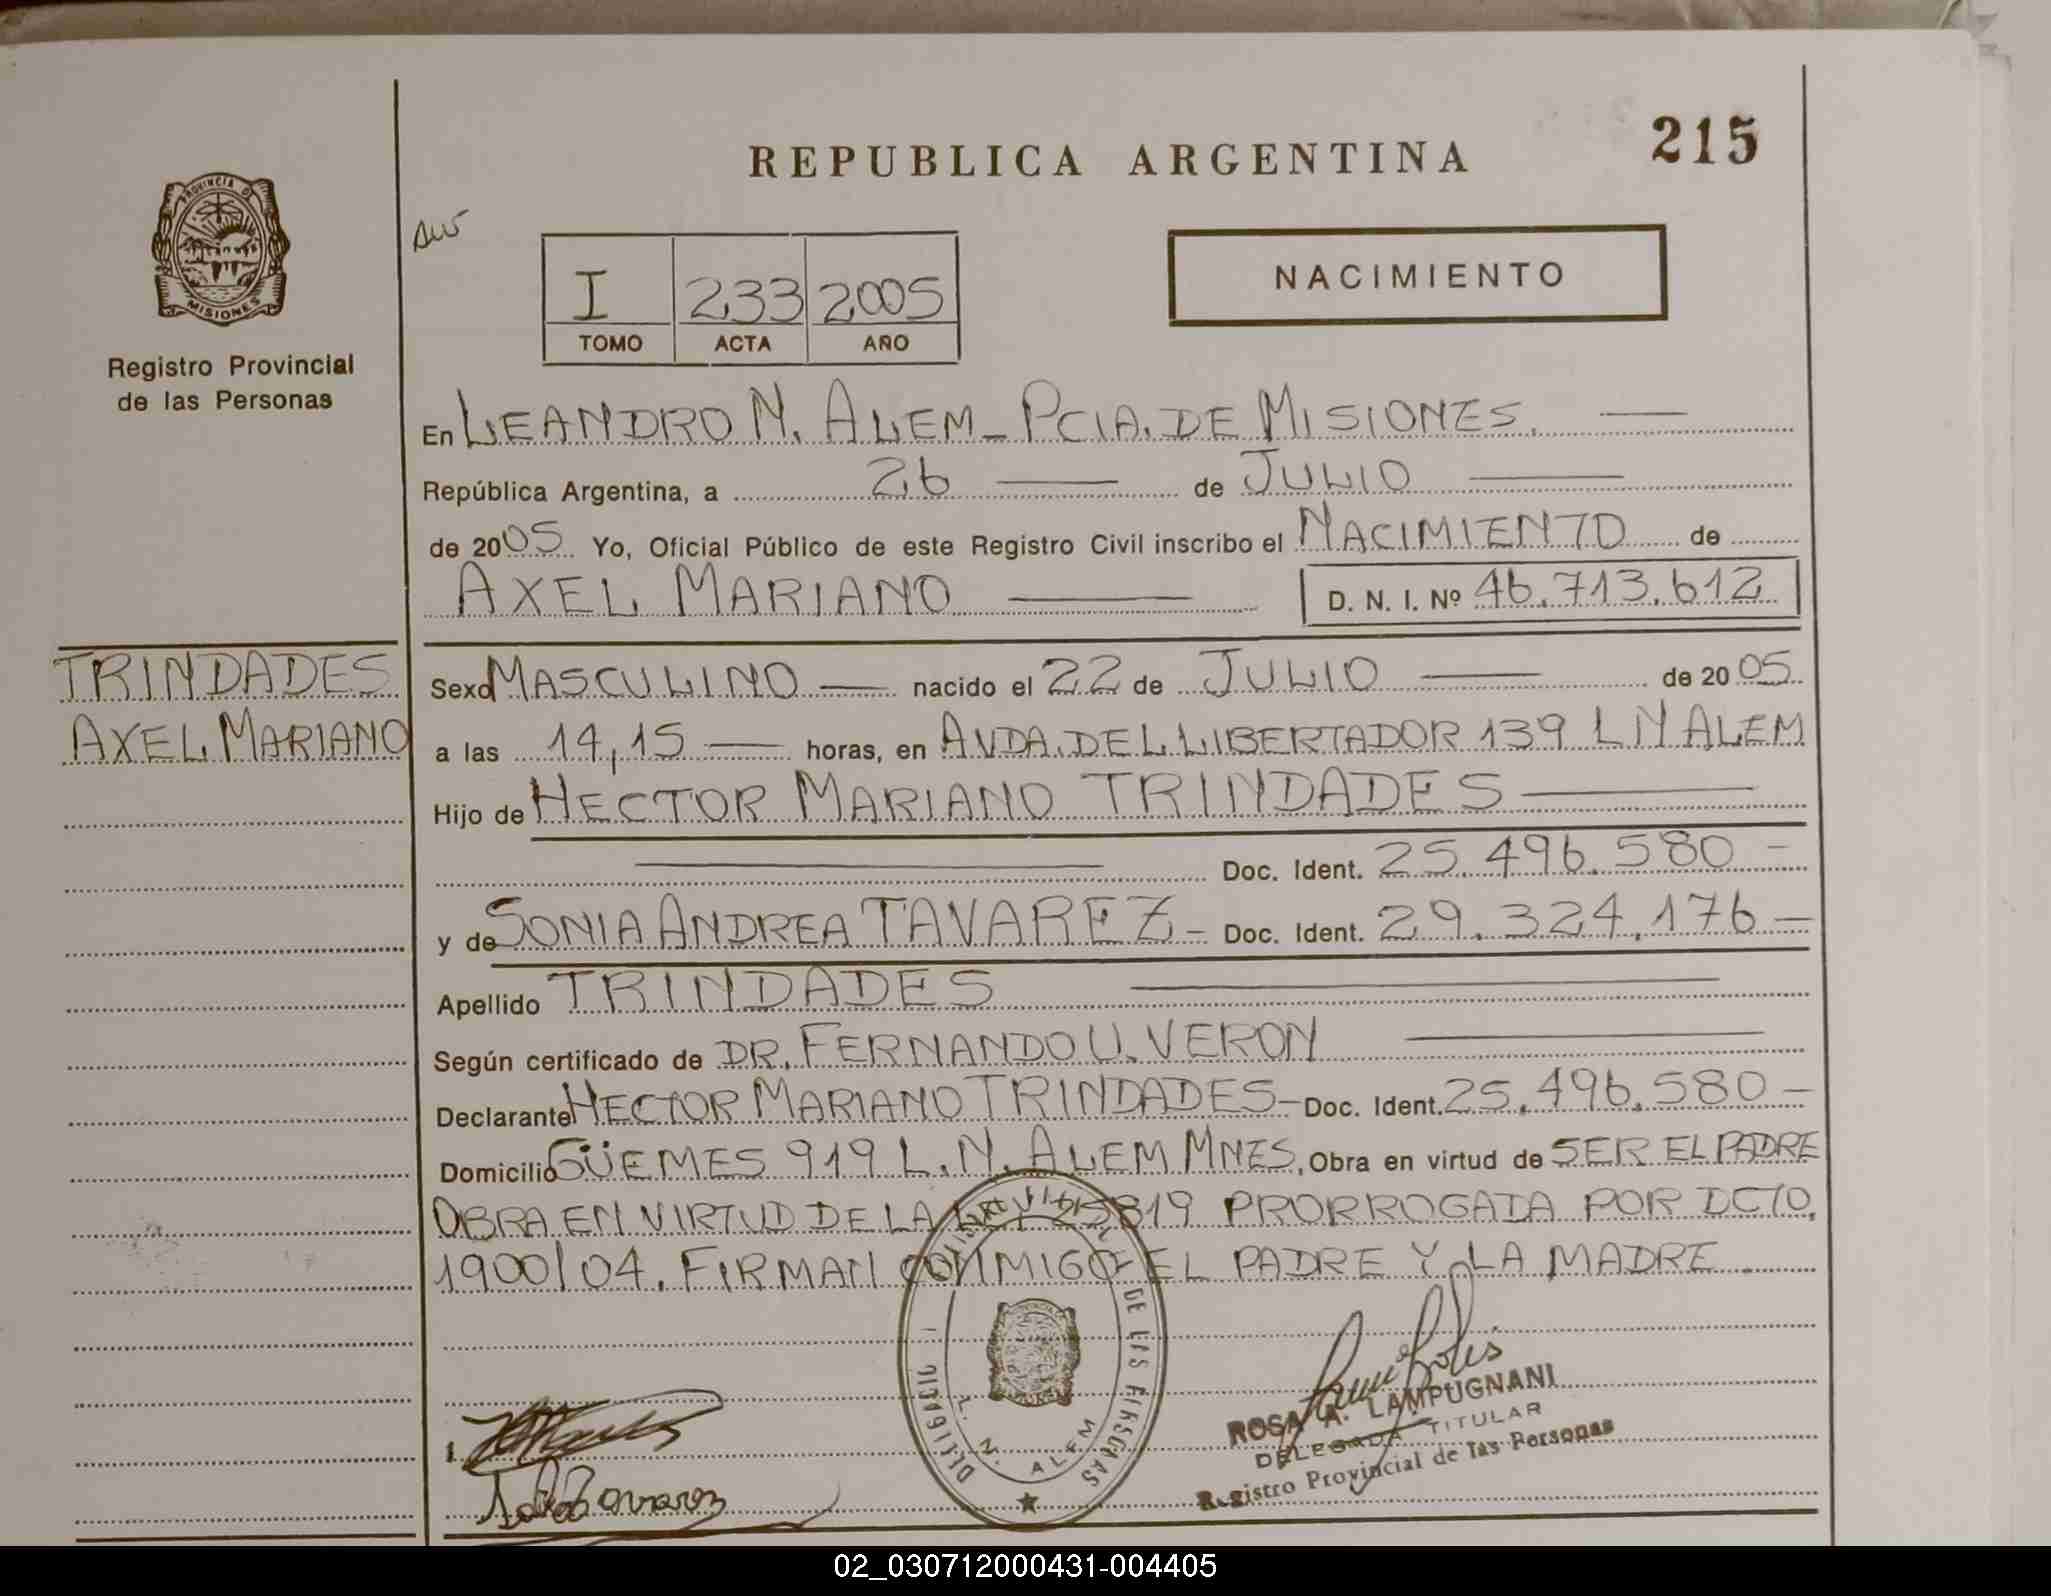 REPUBLICA ARGENTINA
215
PROVINCIA DE
MISIONES
Registro Provincial
de las Personas
I 233 2005
TOMO ACTA AÑO
NACIMIENTO
En LEANDRO N. ALEM - PCIA. DE MISIONES.
República Argentina, a 26 de JULIO
de 2005 Yo, Oficial Público de este Registro Civil inscribo el NACIMIENTO de
AXEL MARIANO D. N. I. Nº 46.713.612
TRINDADES
AXEL MARIANO
Sexo MASCULINO nacido el 22 de JULIO de 2005
a las 14,15 horas, en AVDA. DEL LIBERTADOR 139 L N ALEM
Hijo de HECTOR MARIANO TRINDADES
Doc. Ident. 25.496.580 -
y de SONIA ANDREA TAVAREZ - Doc. Ident. 29.324.176 -
Apellido TRINDADES
Según certificado de DR. FERNANDO U. VERON
Declarante HECTOR MARIANO TRINDADES - Doc. Ident. 25.496.580 -
Domicilio GÜEMES 919 L. N. ALEM MNES, Obra en virtud de SER EL PADRE
OBRA EN VIRTUD DE LA LEY 25819 PRORROGADA POR DCTO.
1900/04. FIRMAN CONMIGO EL PADRE Y LA MADRE.
L. N. ALEM
ROSA A. LAMPUGNANI
DELEGADA TITULAR
Registro Provincial de las Personas
02_030712000431-004405